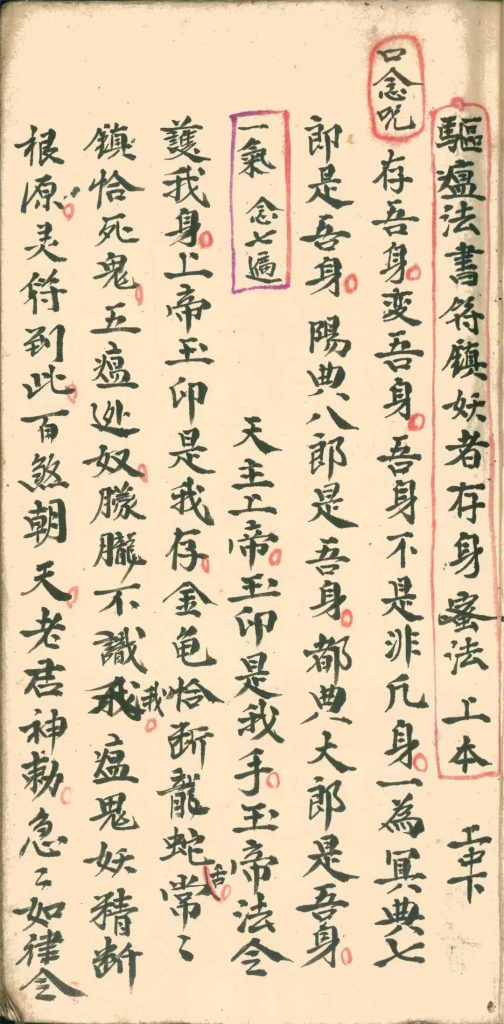 驅瘟法書符鎮妖者存身蜜法上本 上中下
口念咒
存吾身変吾身吾身不是非凡身一為冥典七
郎是吾身陽典八郎是吾身都典大郎是吾身
一氣 念七遍
天主上帝玉印是我手玉帝法令
護我身上帝玉印是我存金龟恰断龍蛇常〻
鎮恰死鬼五瘟迯奴朦朧不識我瘟鬼妖精断
根源灵符到此百煞朝天老君神勅急〻如律令